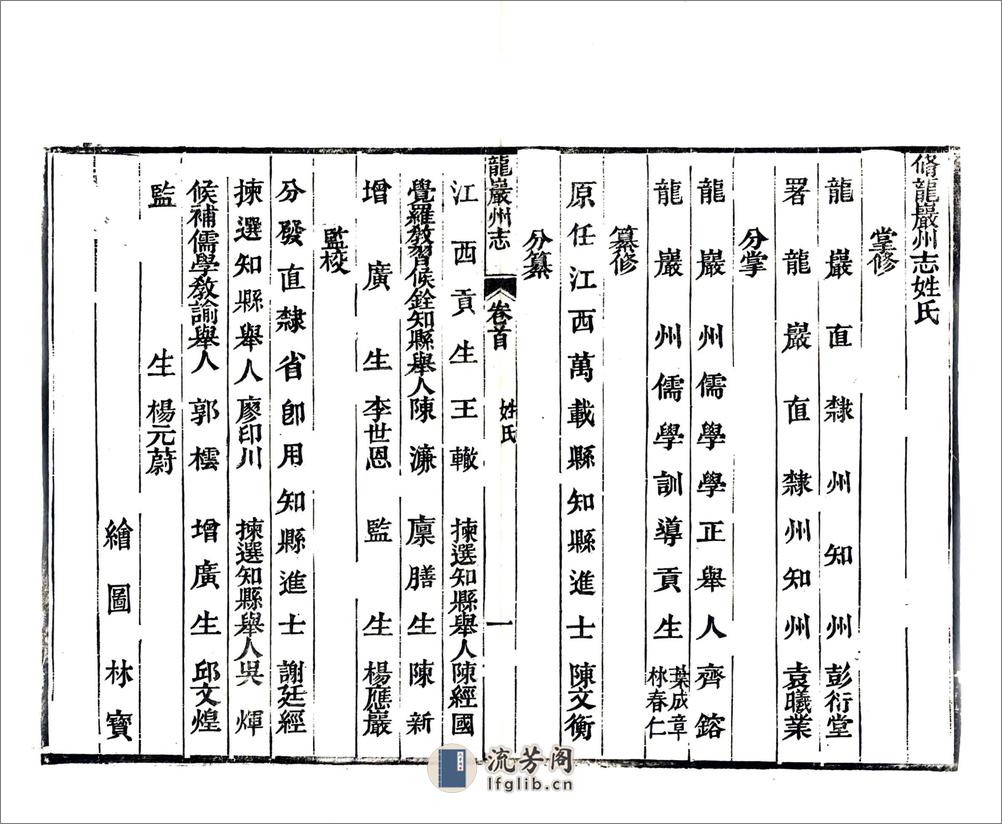 脩龍巖州志姓氏
掌修
龍巖直隸州知州彭衍堂
署龍巖直隸州知州袁曦業
分掌
龍巖州儒學學正舉人齊鎔
龍巖州儒學訓導貢生葉成章林春仁
纂修
原任江西萬載縣知縣進士陳文衡
分纂
龍巖州志 卷首 姓氏 一
江西貢生王轍 揀選知縣舉人陳經國
覺羅教習候銓知縣舉人陳濂 廩膳生陳新
增廣生李世恩 監生楊應巖
監校
分發直隸省卽用知縣進士謝廷經
揀選知縣舉人廖印川 揀選知縣舉人吳煇
候補儒學教諭舉人郭櫄 增廣生邱文煌
監生楊元蔚
繪圖林寶
流芳阁
lfglib.cn